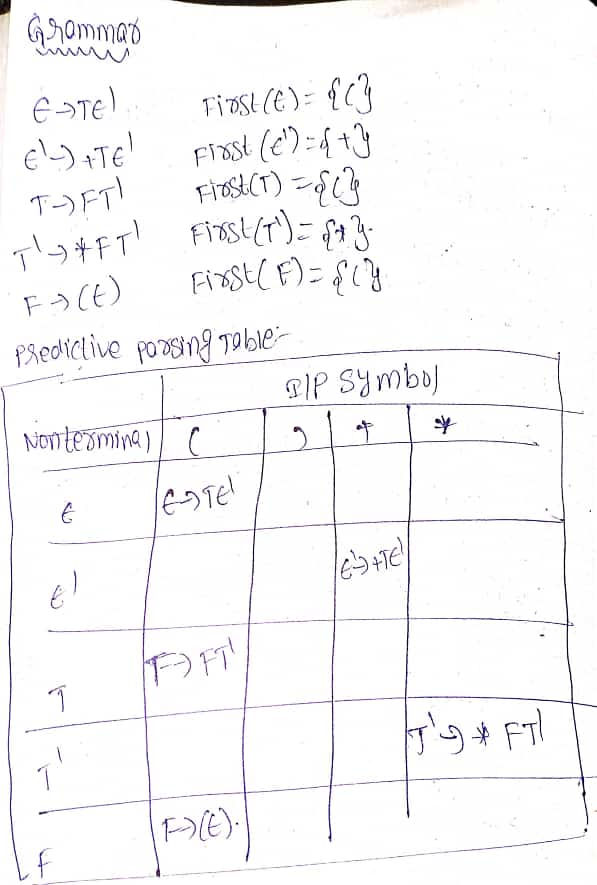 Grammar
E→TE' First(E)={(}
E'→+TE' First(E')={+}
T→FT' First(T)={(}
T'→*FT' First(T')={*}.
F→(E) First(F)={(}
Predictive parsing Table:-
I/P Symbol
Nonterminal ( ) + *
E E→TE'
E' E'→+TE'
T T→FT'
T' T'→*FT'
F F→(E).